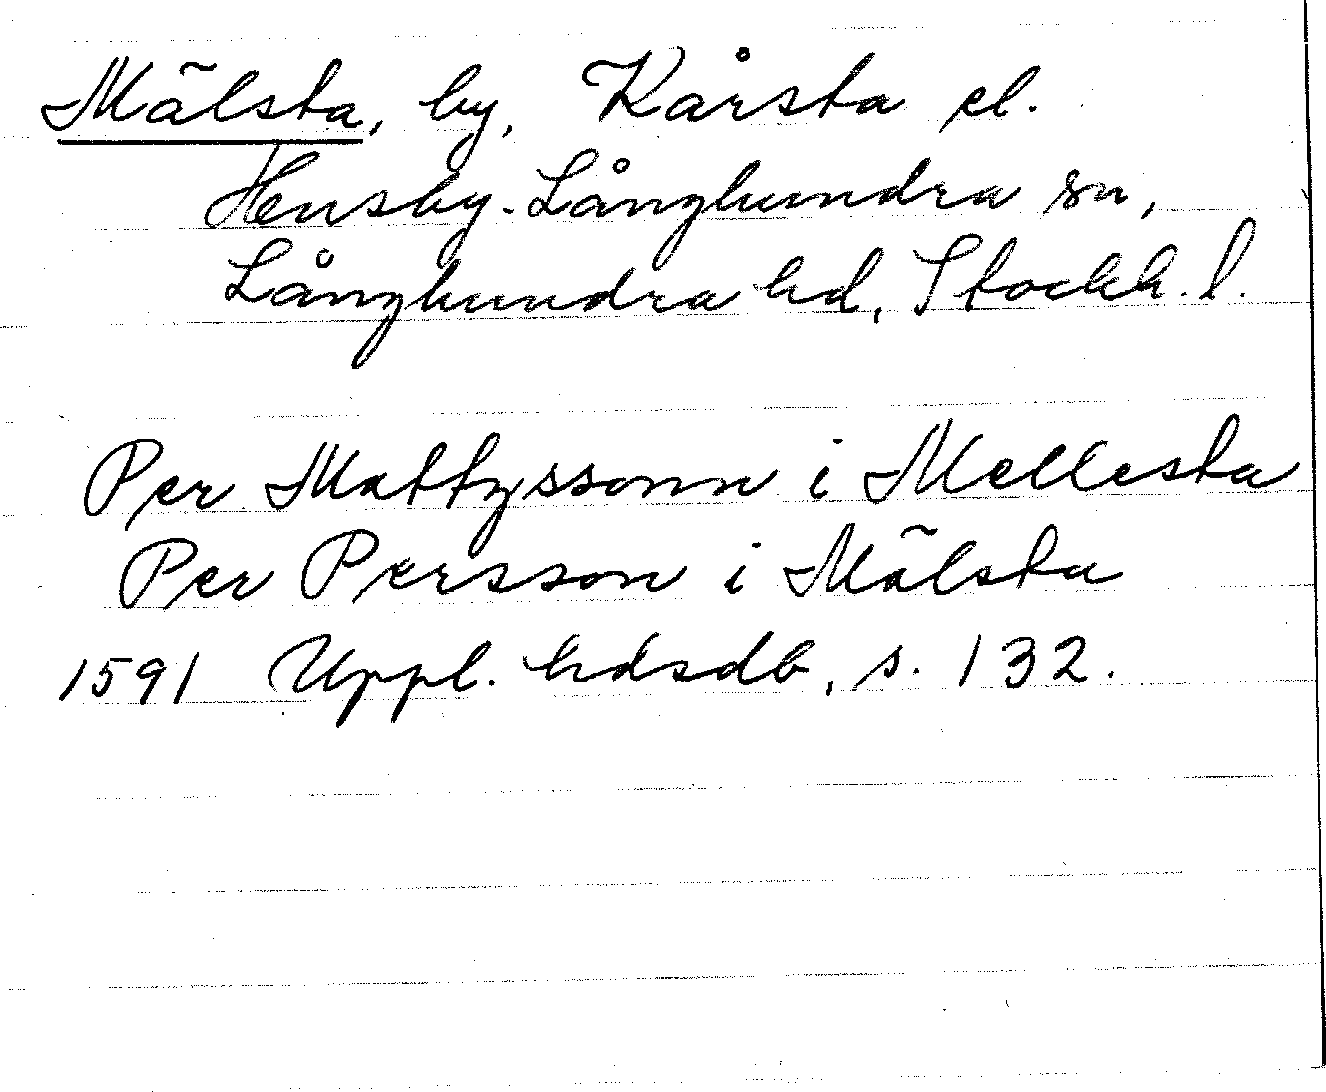 Mälsta, by, Kårsta el.
Husby-Långhundra sn,
Långhundra hd, Stockh. l.
Per Mattzssonn i Mellesta
Per Persson i Mälsta
1591 Uppl. hdsdb, s. 132.